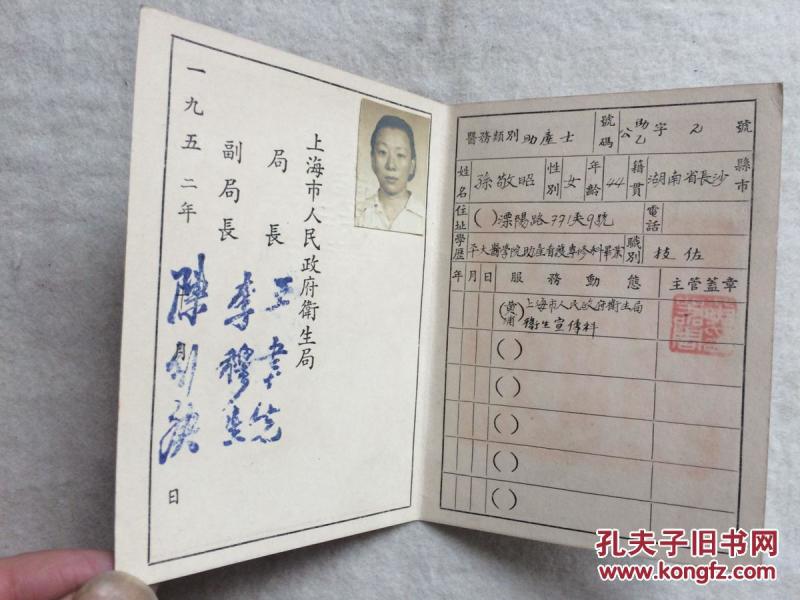 上海市人民政府衛生局
局長 王聿先
副局長 李穆生
一九五二年 月 日
醫務類別 助產士 號碼 公助乙字 2 號
姓名 孫敬昭 性別 女 年齡 44 籍貫 湖南省長沙縣市
住址 ( ) 溧陽路771夹9號 電話
學歷 平大醫学院助產看護專修科畢業 職別 技佐
年 月 日 服務動態 主管蓋章
(黄浦) 上海市人民政府衛生局
衛生宣傳科
( )
( )
( )
( )
( )
孔夫子旧书网
www.kongfz.com